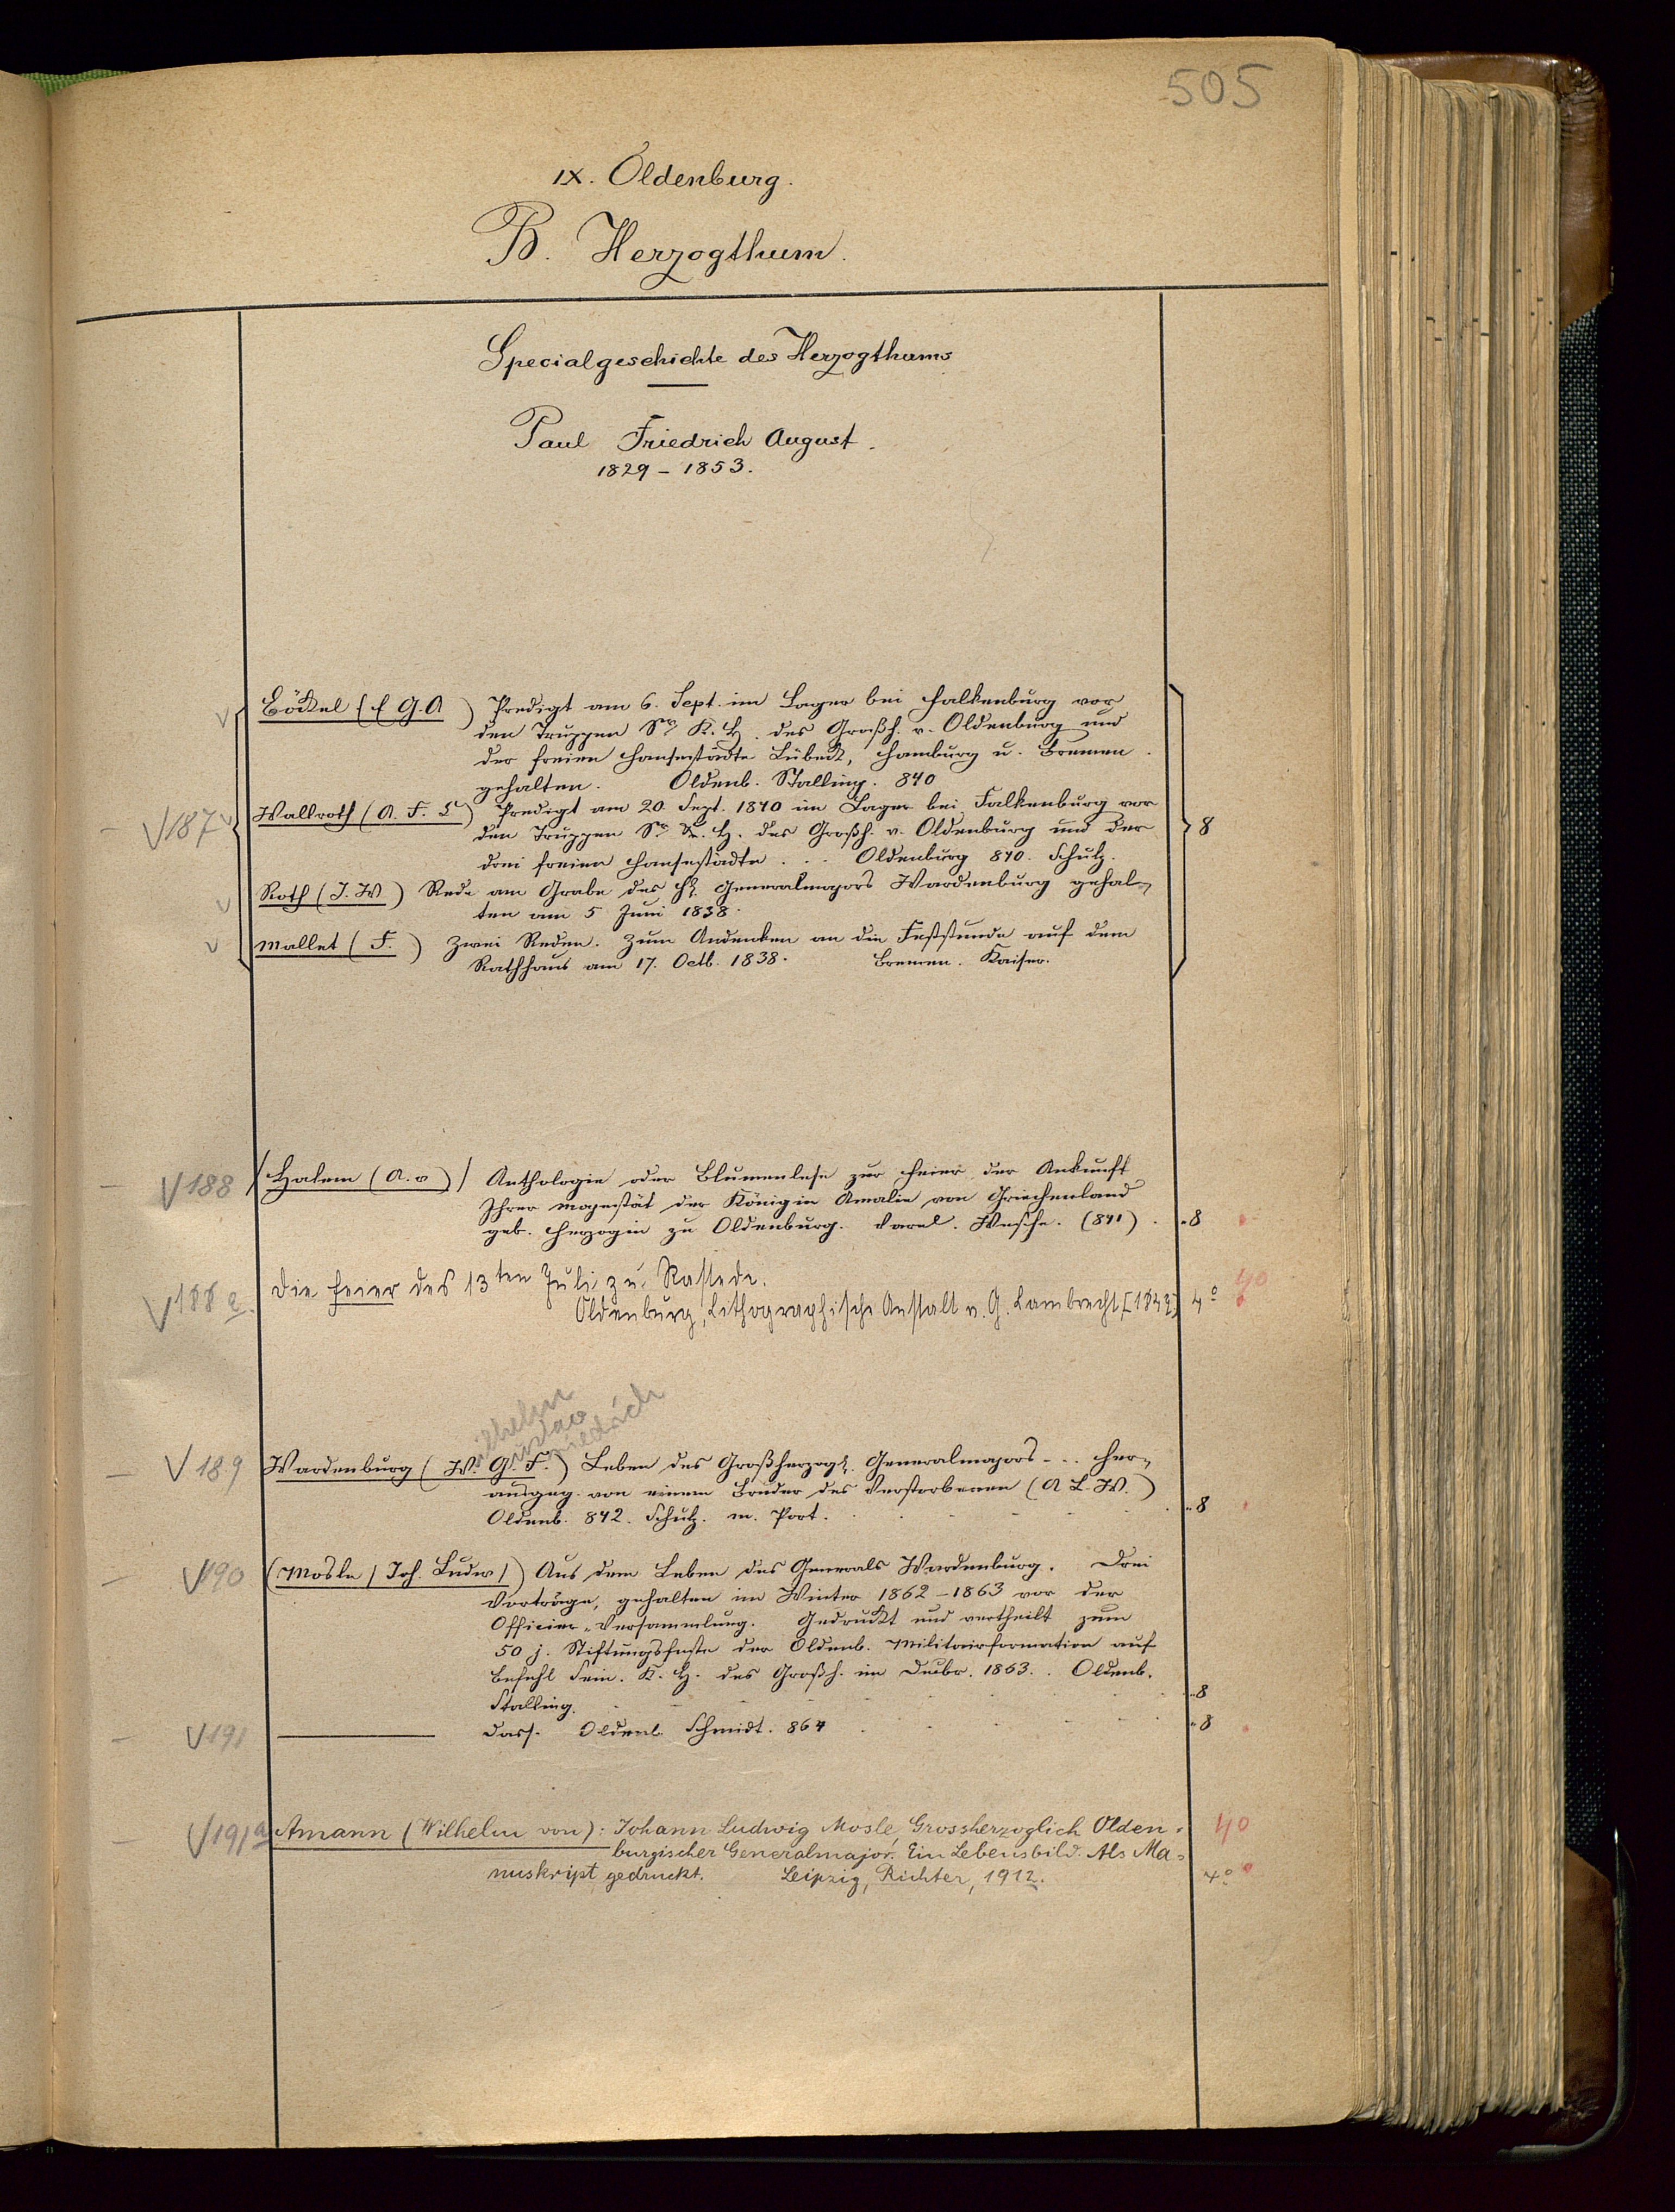 505
IX. Oldenburg.
B. Herzogthum.
Specialgeschichte des Herzogthums
Paul Friedrich August.
1829 – 1853.
Böckel (E G. A) Predigt am 6. Sept. im Lager bei Falkenburg vor
den Truppen Sr. K. H. des Großh. v. Oldenburg und
der freien Hansestädte Lübeck, Hamburg u. Bremen
gehalten. Oldenb. Stalling. 840
V 187 Wallroth (A. F. ) Predigt am 20. Sept. 1840 im Lager bei Falkenburg vor
den Truppen Sr. K. H. des Großh. v. Oldenburg und der 8
drei freien Hansestädte . . . Oldenburg 840. Schulz.
Roth (J. W) Rede am Grabe des H. Generalmajors Wardenburg gehal-
ten am 5 Juni 1838.
Mallet (F.) Zwei Reden. Zum Andenken an die Feststunde auf dem
Rathhaus am 17. Octb. 1838. Bremen. Kaiser.
V 188 / Halem (A. v) / Anthologie oder Blumenlese zur Feier der Ankunft
Ihrer Majestät der Königin Amalie von Griechenland
geb. Herzogin zu Oldenburg. Varel. Wesche. (841) . 8
V 188 a. Die Feier des 13ten Juli zu Rastede. 40
Oldenburg, Lithographische Anstalt v. G. Lambrecht, [1843] 4°
Wilhelm
Gustav
Friedrich
V 189 Wardenburg (W. G. F.) Leben des Großherzogl. Generalmajors - . . her-
ausgeg. von einem Bruder des Verstorbenen (A L. W.)
Oldenb. 842. Schulz. m. Port. 8
V 190 (Mosle / Joh. Ludw /) Aus dem Leben des Generals Wardenburg. Drei
Vorträge, gehalten im Winter 1862 – 1863 vor der
Officier-Versammlung. Gedruckt und vertheilt zum
50 j. Stiftungsfeste der Oldenb. Militairformation auf
Befehl Sein. K. H. des Großh. im Decbr. 1863. . Oldenb.
Stalling. 8
V 191 ——— Dass. Oldenb. Schmidt. 864 8
V 191a Amann (Wilhelm von): Johann Ludwig Mosle, Grossherzoglich Olden= 40
burgischer Generalmajor. Ein Lebensbild. Als Ma=
nuskript gedruckt. Leipzig, Richter, 1912. 4°